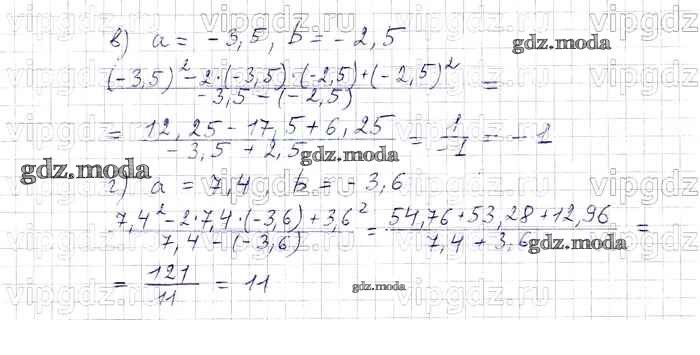 vipgdz.ru vipgdz.ru vipgdz.ru vipgdz.ru
в) a = -3,5, b = -2,5
gdz.moda
((-3,5)² - 2·(-3,5)·(-2,5) + (-2,5)²) / (-3,5 - (-2,5)) =
= (12,25 - 17,5 + 6,25) / (-3,5 + 2,5) = 1/-1 = -1
gdz.moda
gdz.moda
г) a = 7,4, b = -3,6
(7,4² - 2·7,4·(-3,6) + 3,6²) / (7,4 - (-3,6)) = (54,76 + 53,28 + 12,96) / (7,4 + 3,6) =
gdz.moda
= 121/11 = 11
gdz.moda